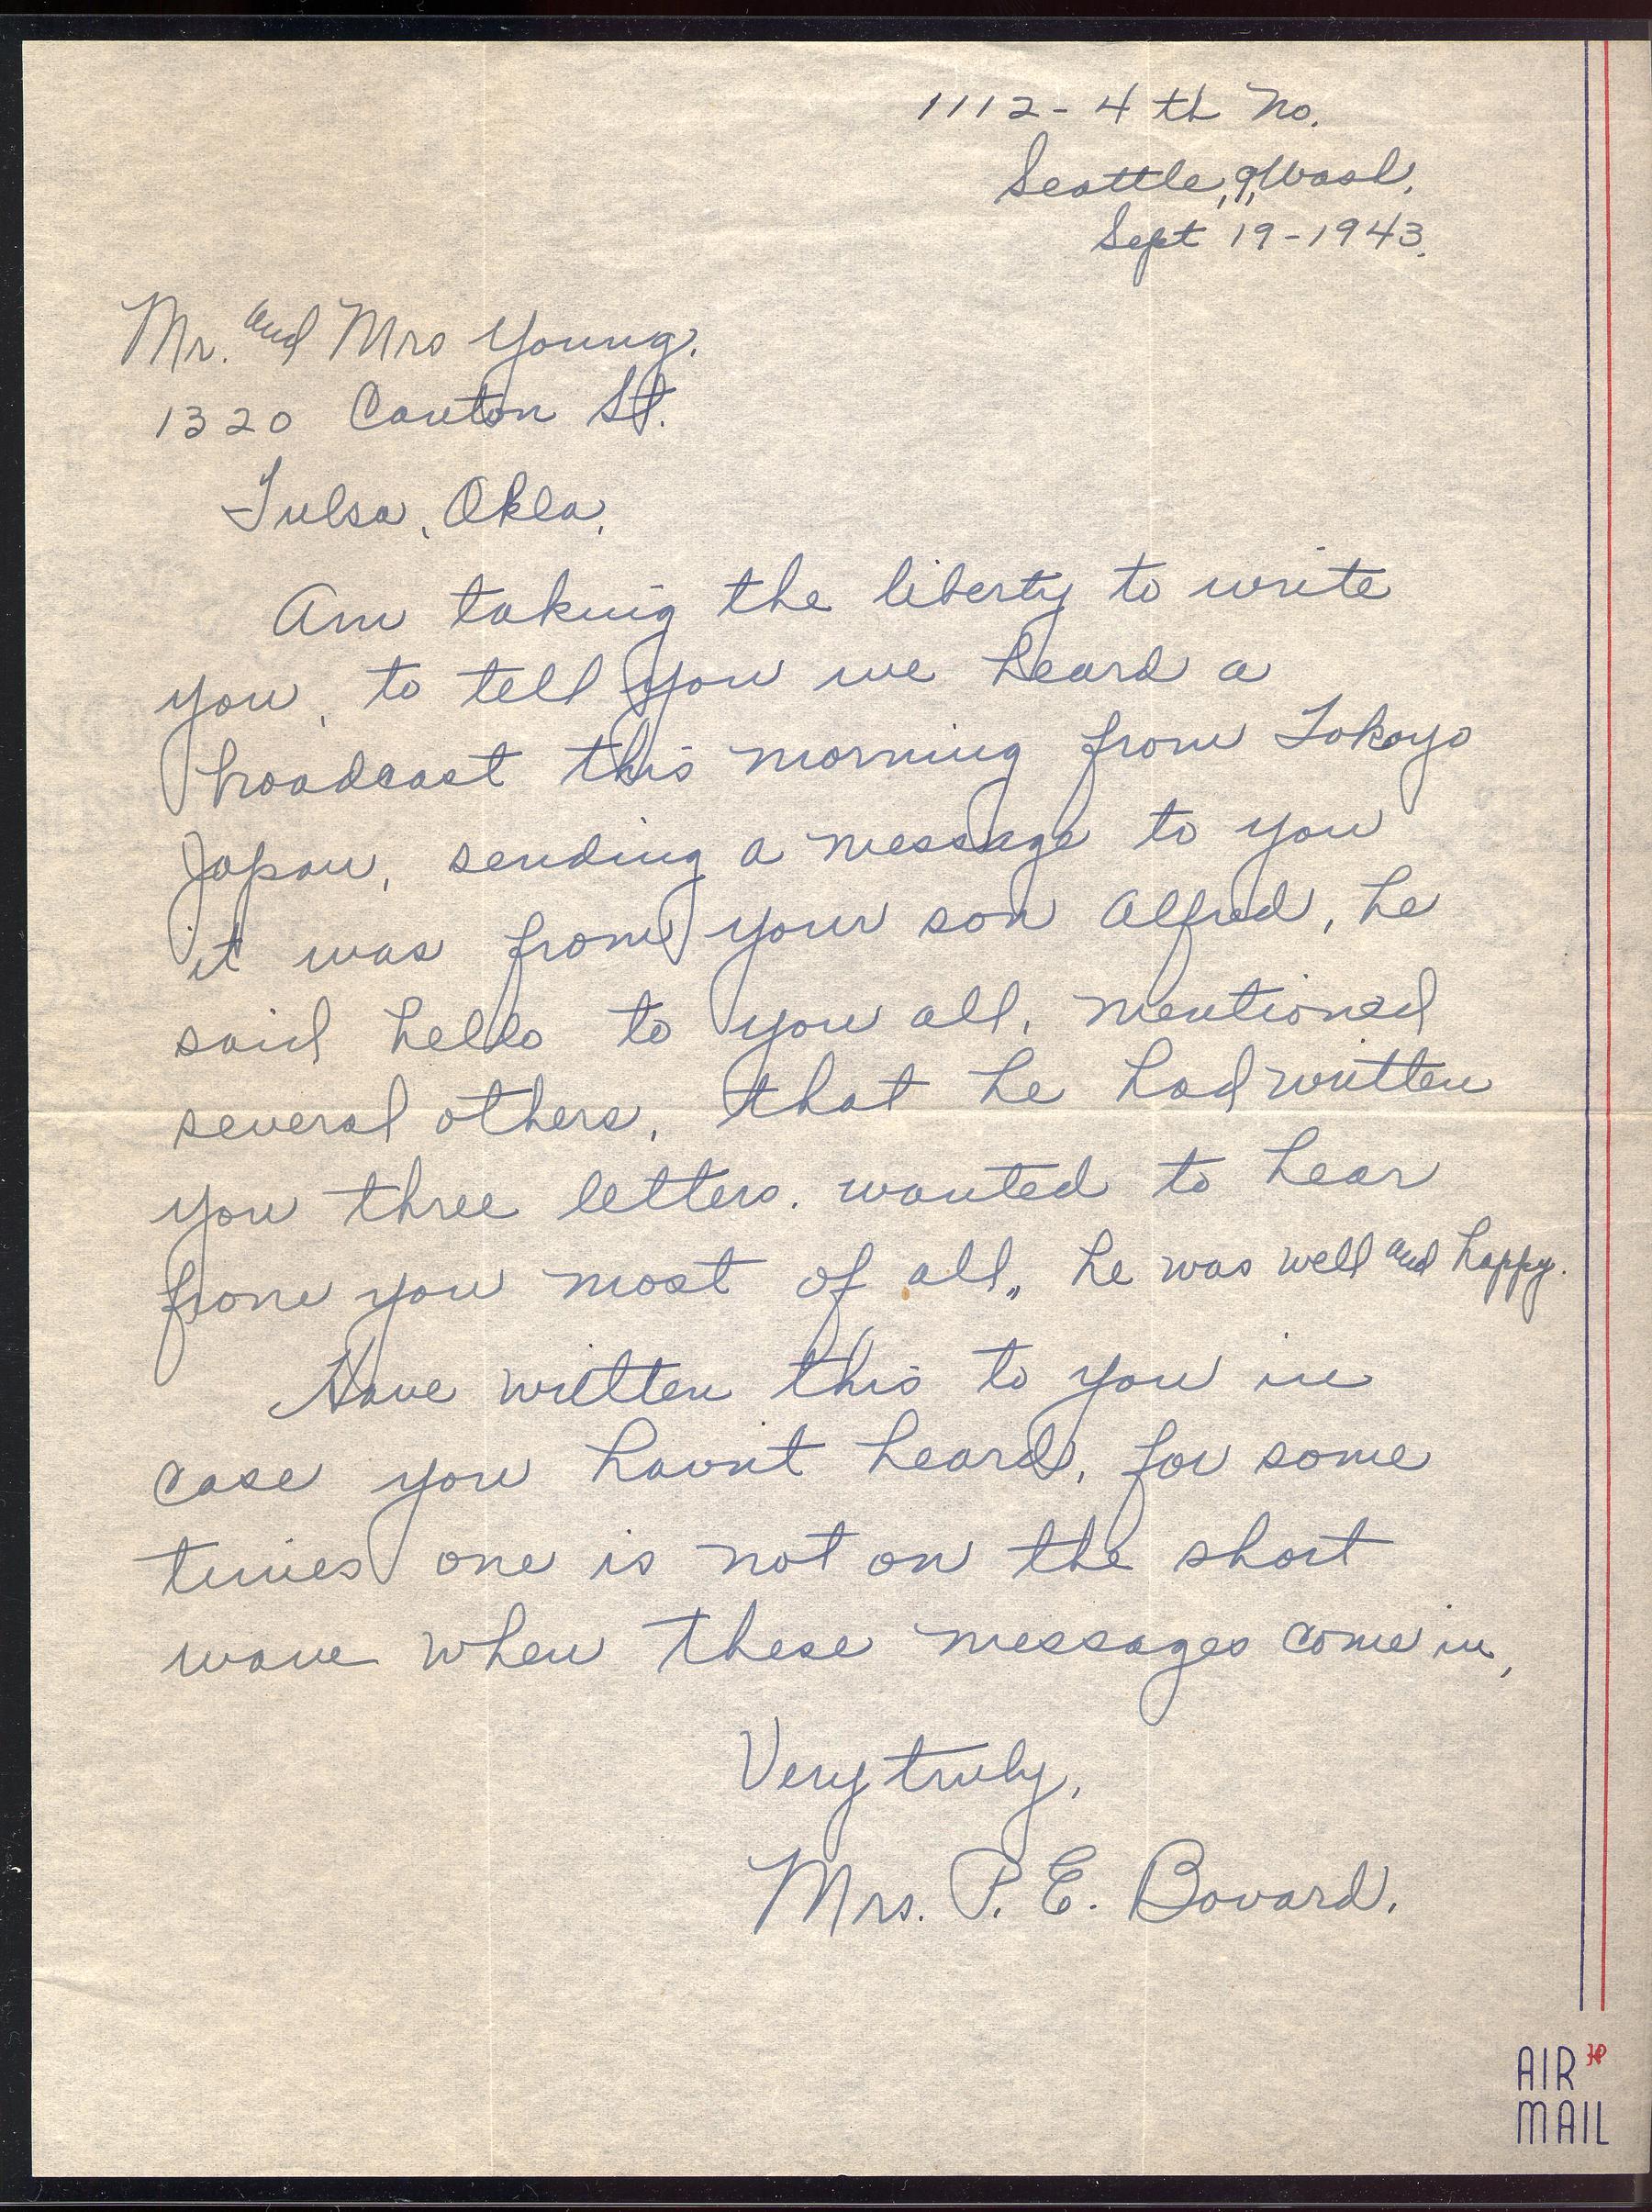 1112 - 4 th No.
Seattle, 9, Wash.
Sept 19 - 1943.
Mr. and Mrs Young.
1320 Canton St.
Tulsa, Okla,
Am taking the liberty to write
you, to tell you we heard a
broadcast this morning from Tokoyo
Japan, sending a message to you
it was from your son Alfred, he
said hello to you all, mentioned
several others, that he had written
you three letters. wanted to hear
from you most of all,, he was well and happy.
Have written this to you in
case you havnt heard, for some
times one is not on the short
wave when these messages come in,
Very truly,
Mrs. P. E. Bovard.
AIR
MAIL